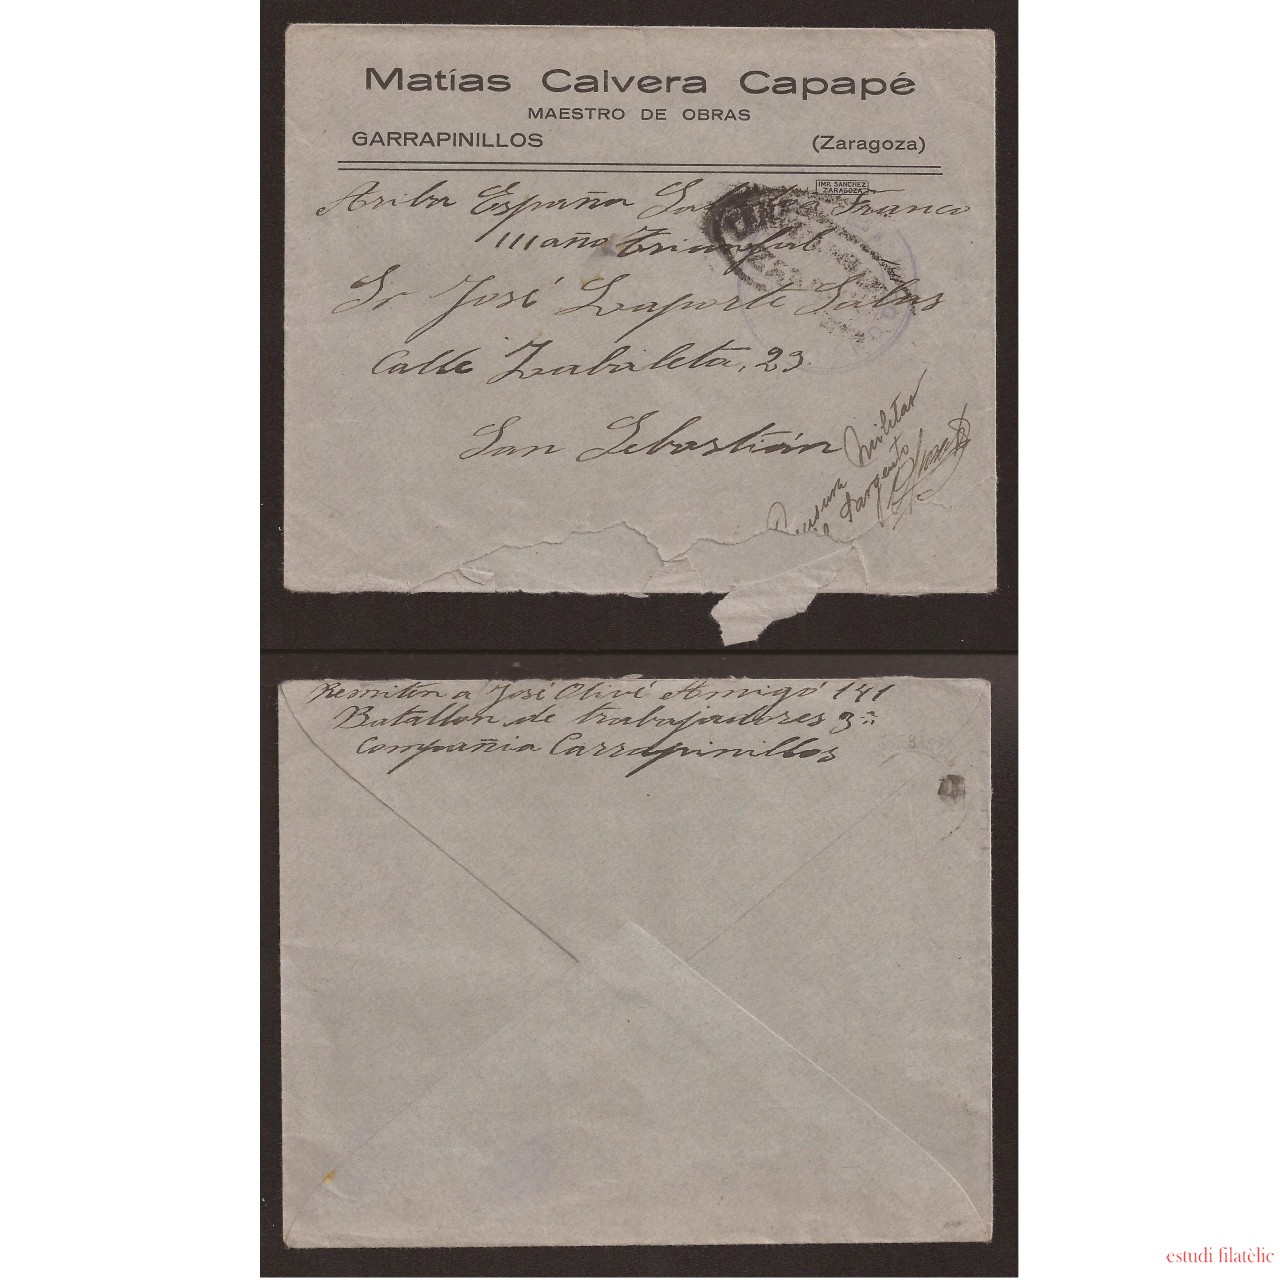 Matías Calvera Capapé
MAESTRO DE OBRAS
GARRAPINILLOS (Zaragoza)
IMP. SANCHEZ
ZARAGOZA
Ariba España Franco
III año Triunfal
Sr José Laporte Salas
Calle Zabaleta, 23.
San Sebastián
Censura Militar
El Sargento
Remiten a José Olivé Amigó 141
Batallon de trabajadores 3ª
Compañia Carrapinillos
estudi filatèlic